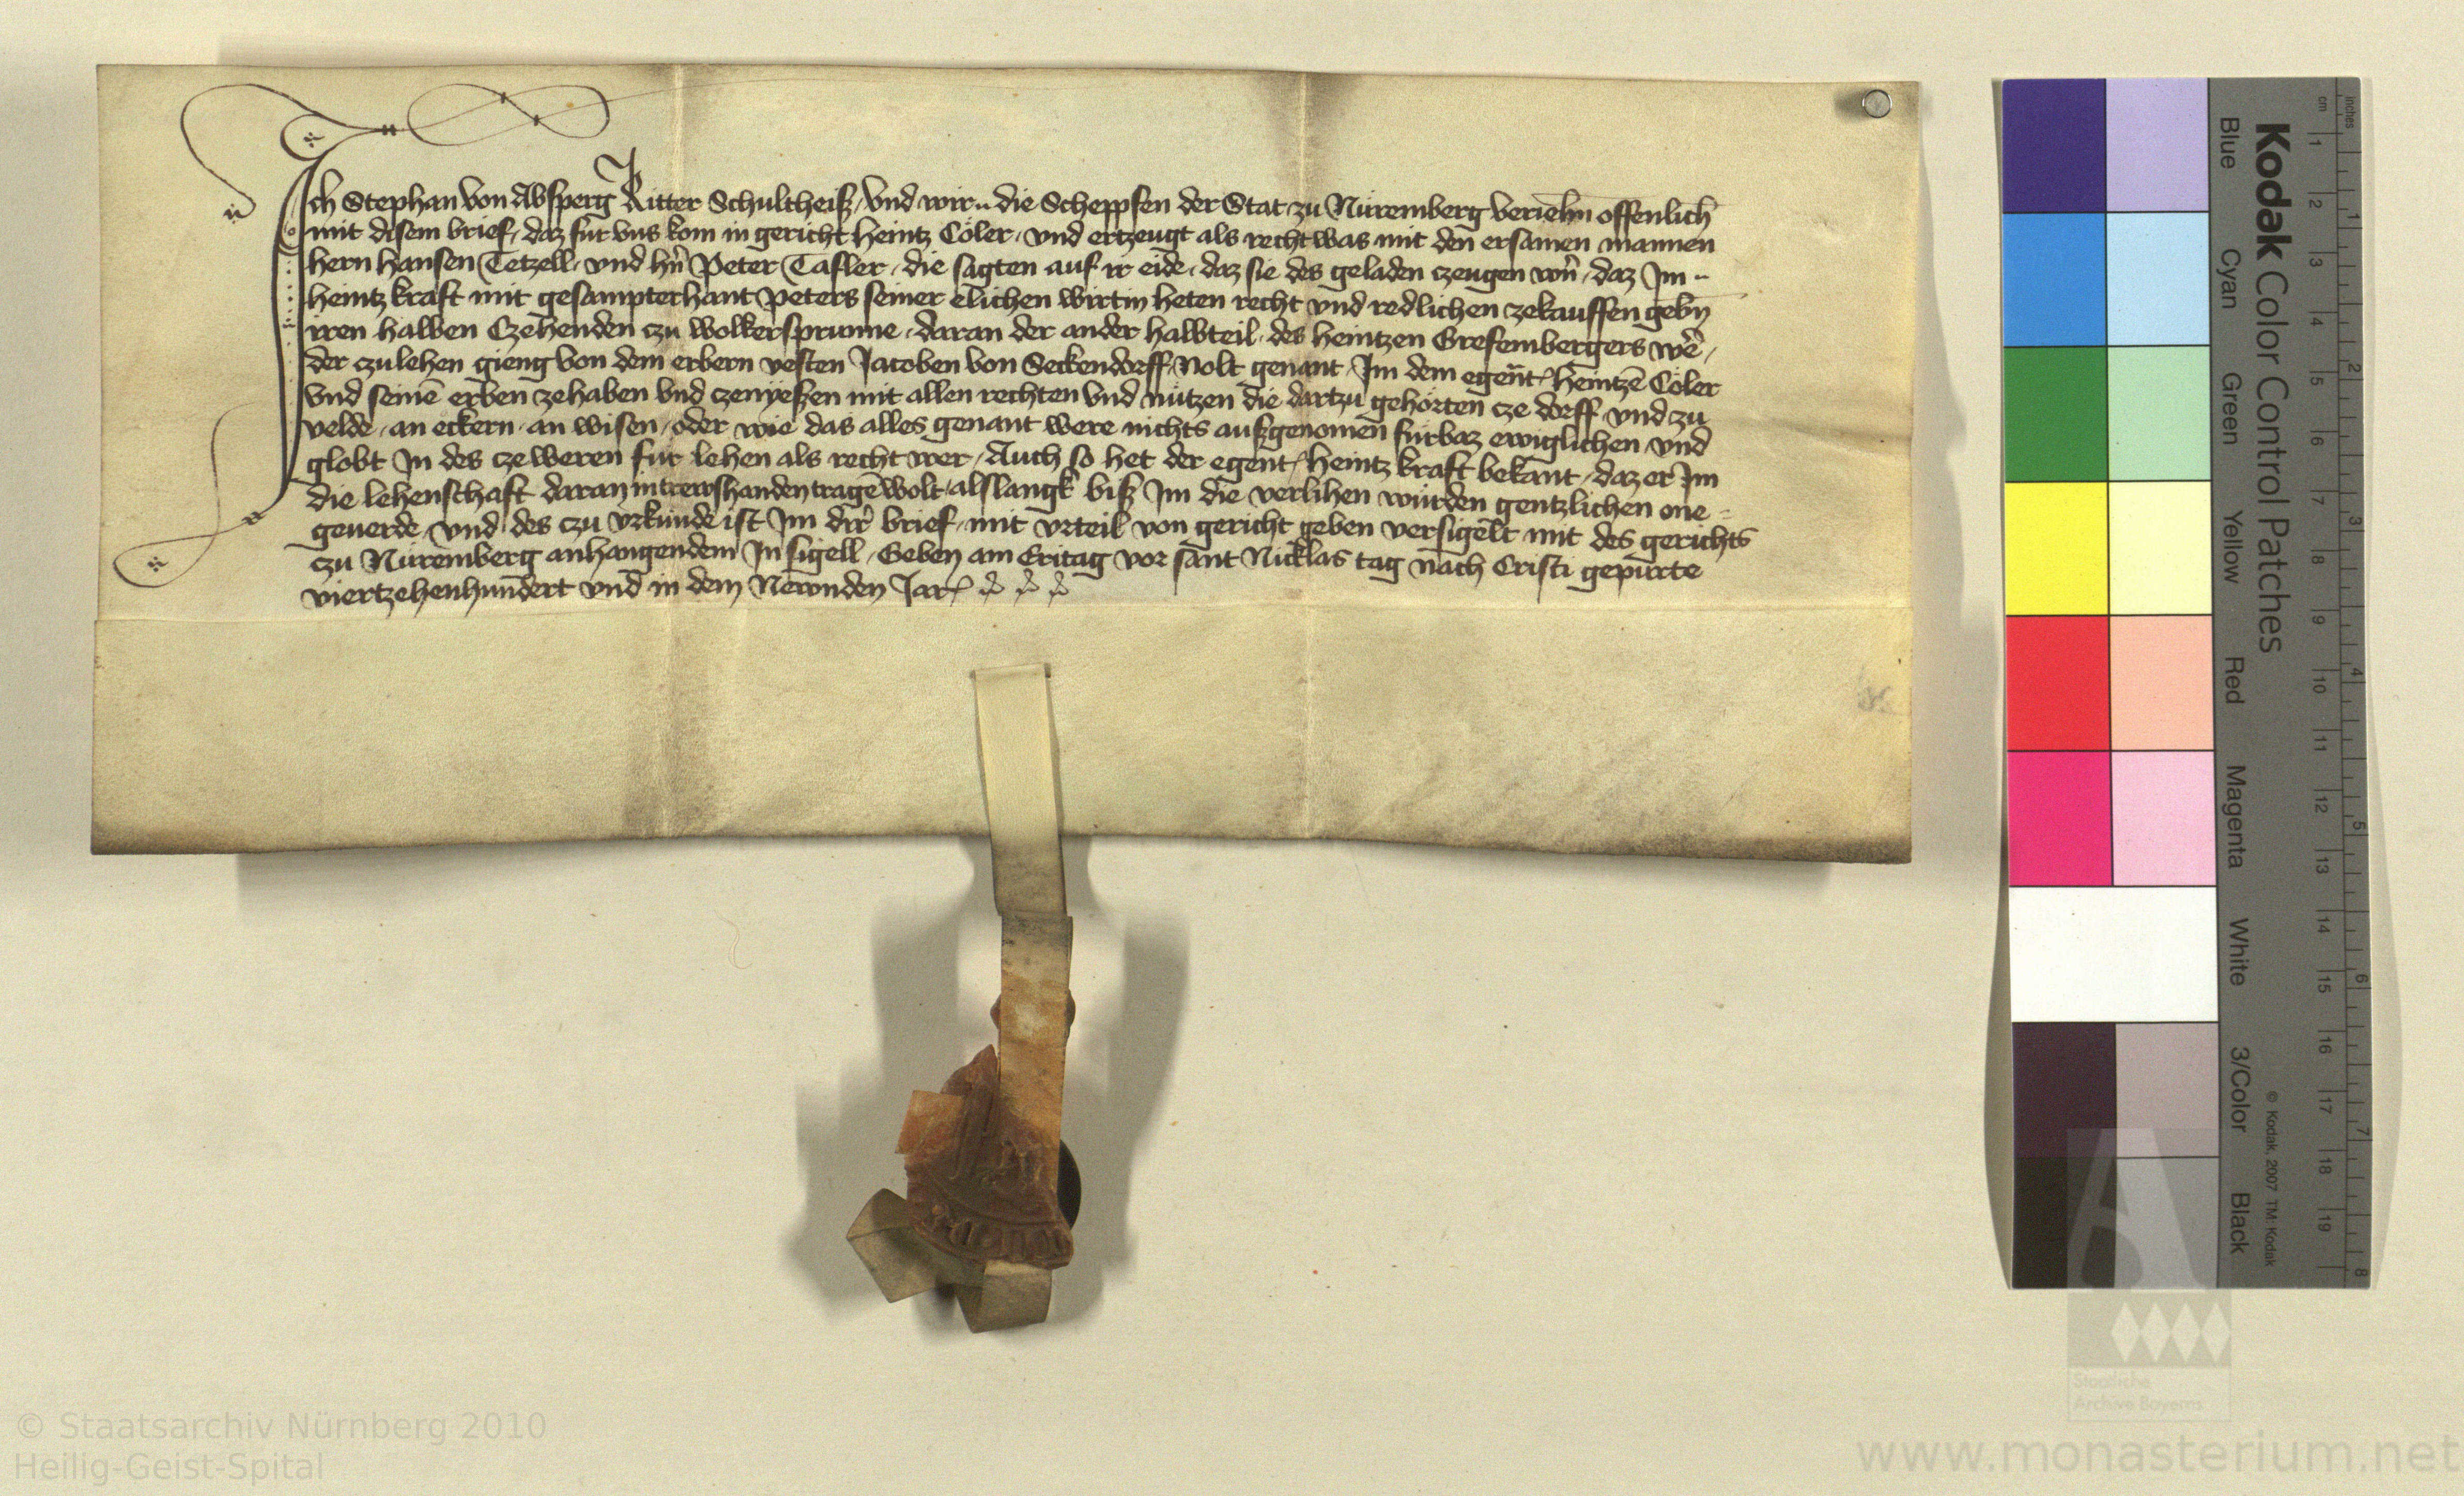 Ich Stephan von Absperg Ritter Schultheiß, vnd wir.. die Scheppfen der Stat zu Nüremberg veriehn offenlich
mit disem brief, daz für vns kom in gericht Heintz Cöler, vnd ertzeugt als recht was mit den ersamen mannen
hern Hansen Tetzell, vnd hn̄ Peter Tafler, die sagten auf ir eide, daz sie des geladen czeugen wn̄, daz Im..
Heintz kraft mit gesampterhant Peters seiner elichen wirtin heten recht vnd redlichen zekauffen gebn̄
iren halben Czehenden czu wolkersprunne, daran der ander halbteil, des Heintzen Grefembergers wē,
der czulehen gieng von dem erbern vesten Jacoben von Seckendorff Nolt genant, Im dem egen̄t, Heintzē Cöler
vnd seinē erben zehaben vnd czenyeßen mit allen rechten vnd nützen die dartzu gehörten cze dorff, vnd zu
velde, an eckern, an wisen, oder wie das alles genant were nichts außgenomen fürbaz ewiglichen, vnd
globt In des cze weren für lehen als recht wer, Auch so het der egent, Heintz kraft bekant, daz er Im
die lehenschaft daran in trewshanden tragē wolt, alslangk biß Im die verlihen würden gentzlichen one
geuerde, vnd des czu vrkünde ist Im dir̄ brief, mit vrteil von gericht geben versigelt mit des gerichts
czu Nüremberg anhangendem Insigell, Geben am Eritag vor sant Nicklas tag nach Cristi gepürte
viertzehenhundert vnd in dem Newnden Jar
Kodak Color Control Patches
Blue Cyan Green Yellow Red Magenta White 3/Color Black
© Kodak, 2007 TM: Kodak
inches 1 2 3 4 5 6 7 8
cm 1 2 3 4 5 6 7 8 9 10 11 12 13 14 15 16 17 18 19
Staatliche
Archive Bayerns
© Staatsarchiv Nürnberg 2010
Heilig-Geist-Spital
www.monasterium.net